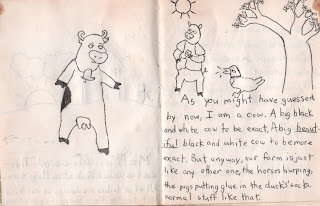 As you might have guessed
by now, I am a cow. A big black
and white cow to be exact. A big beaut-
iful black and white cow to be more
exact. But anyway, our farm is just
like any other one, the horses burping,
the pigs putting glue in the duck's socks,
normal stuff like that.